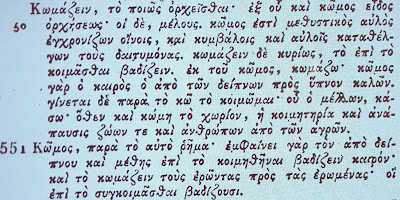 Κωμάζειν, τὸ ποιῶς ὀρχεῖσθαι· ἐξ οὗ καὶ κῶμος εἶδος
50 ὀρχήσεως· οἱ δὲ, μέλους. κῶμος ἐστὶ μεθυστικὸς αὐλὸς
ἐγχρονίζων οἴνοις, καὶ κυμβάλοις καὶ αὐλοῖς καταθέλ-
γων τοὺς δαιτυμόνας. κωμάζειν δὲ κυρίως, τὸ ἐπὶ τὸ
κοιμᾶσθαι βαδίζειν. ἐκ τοῦ κῶμος, κωμάζω· κῶμος
γὰρ ὁ καιρὸς ὁ ἀπὸ τῶν δείπνων πρὸς ὕπνον καλῶν.
γίνεται δὲ παρὰ τὸ κῶ τὸ κοιμῶμαι· οὗ ὁ μέλλων, κά-
σω· ὅθεν καὶ κώμη τὸ χωρίον, ἡ κοιμητηρία καὶ ἀνά-
παυσις ζώων τε καὶ ἀνθρώπων ἀπὸ τῶν ἀγρῶν.
551 Κῶμος, παρὰ τὸ αὐτὸ ῥῆμα· ἐμφαίνει γὰρ τὸν ἀπὸ δεί-
πνου καὶ μέθης ἐπὶ τὸ κοιμηθῆναι βαδίζειν καιρόν·
καὶ τὸ κωμάζειν τοὺς ἐρῶντας πρὸς τὰς ἐρωμένας· οἱ
ἐπὶ τὸ συγκοιμᾶσθαι βαδίζουσι.